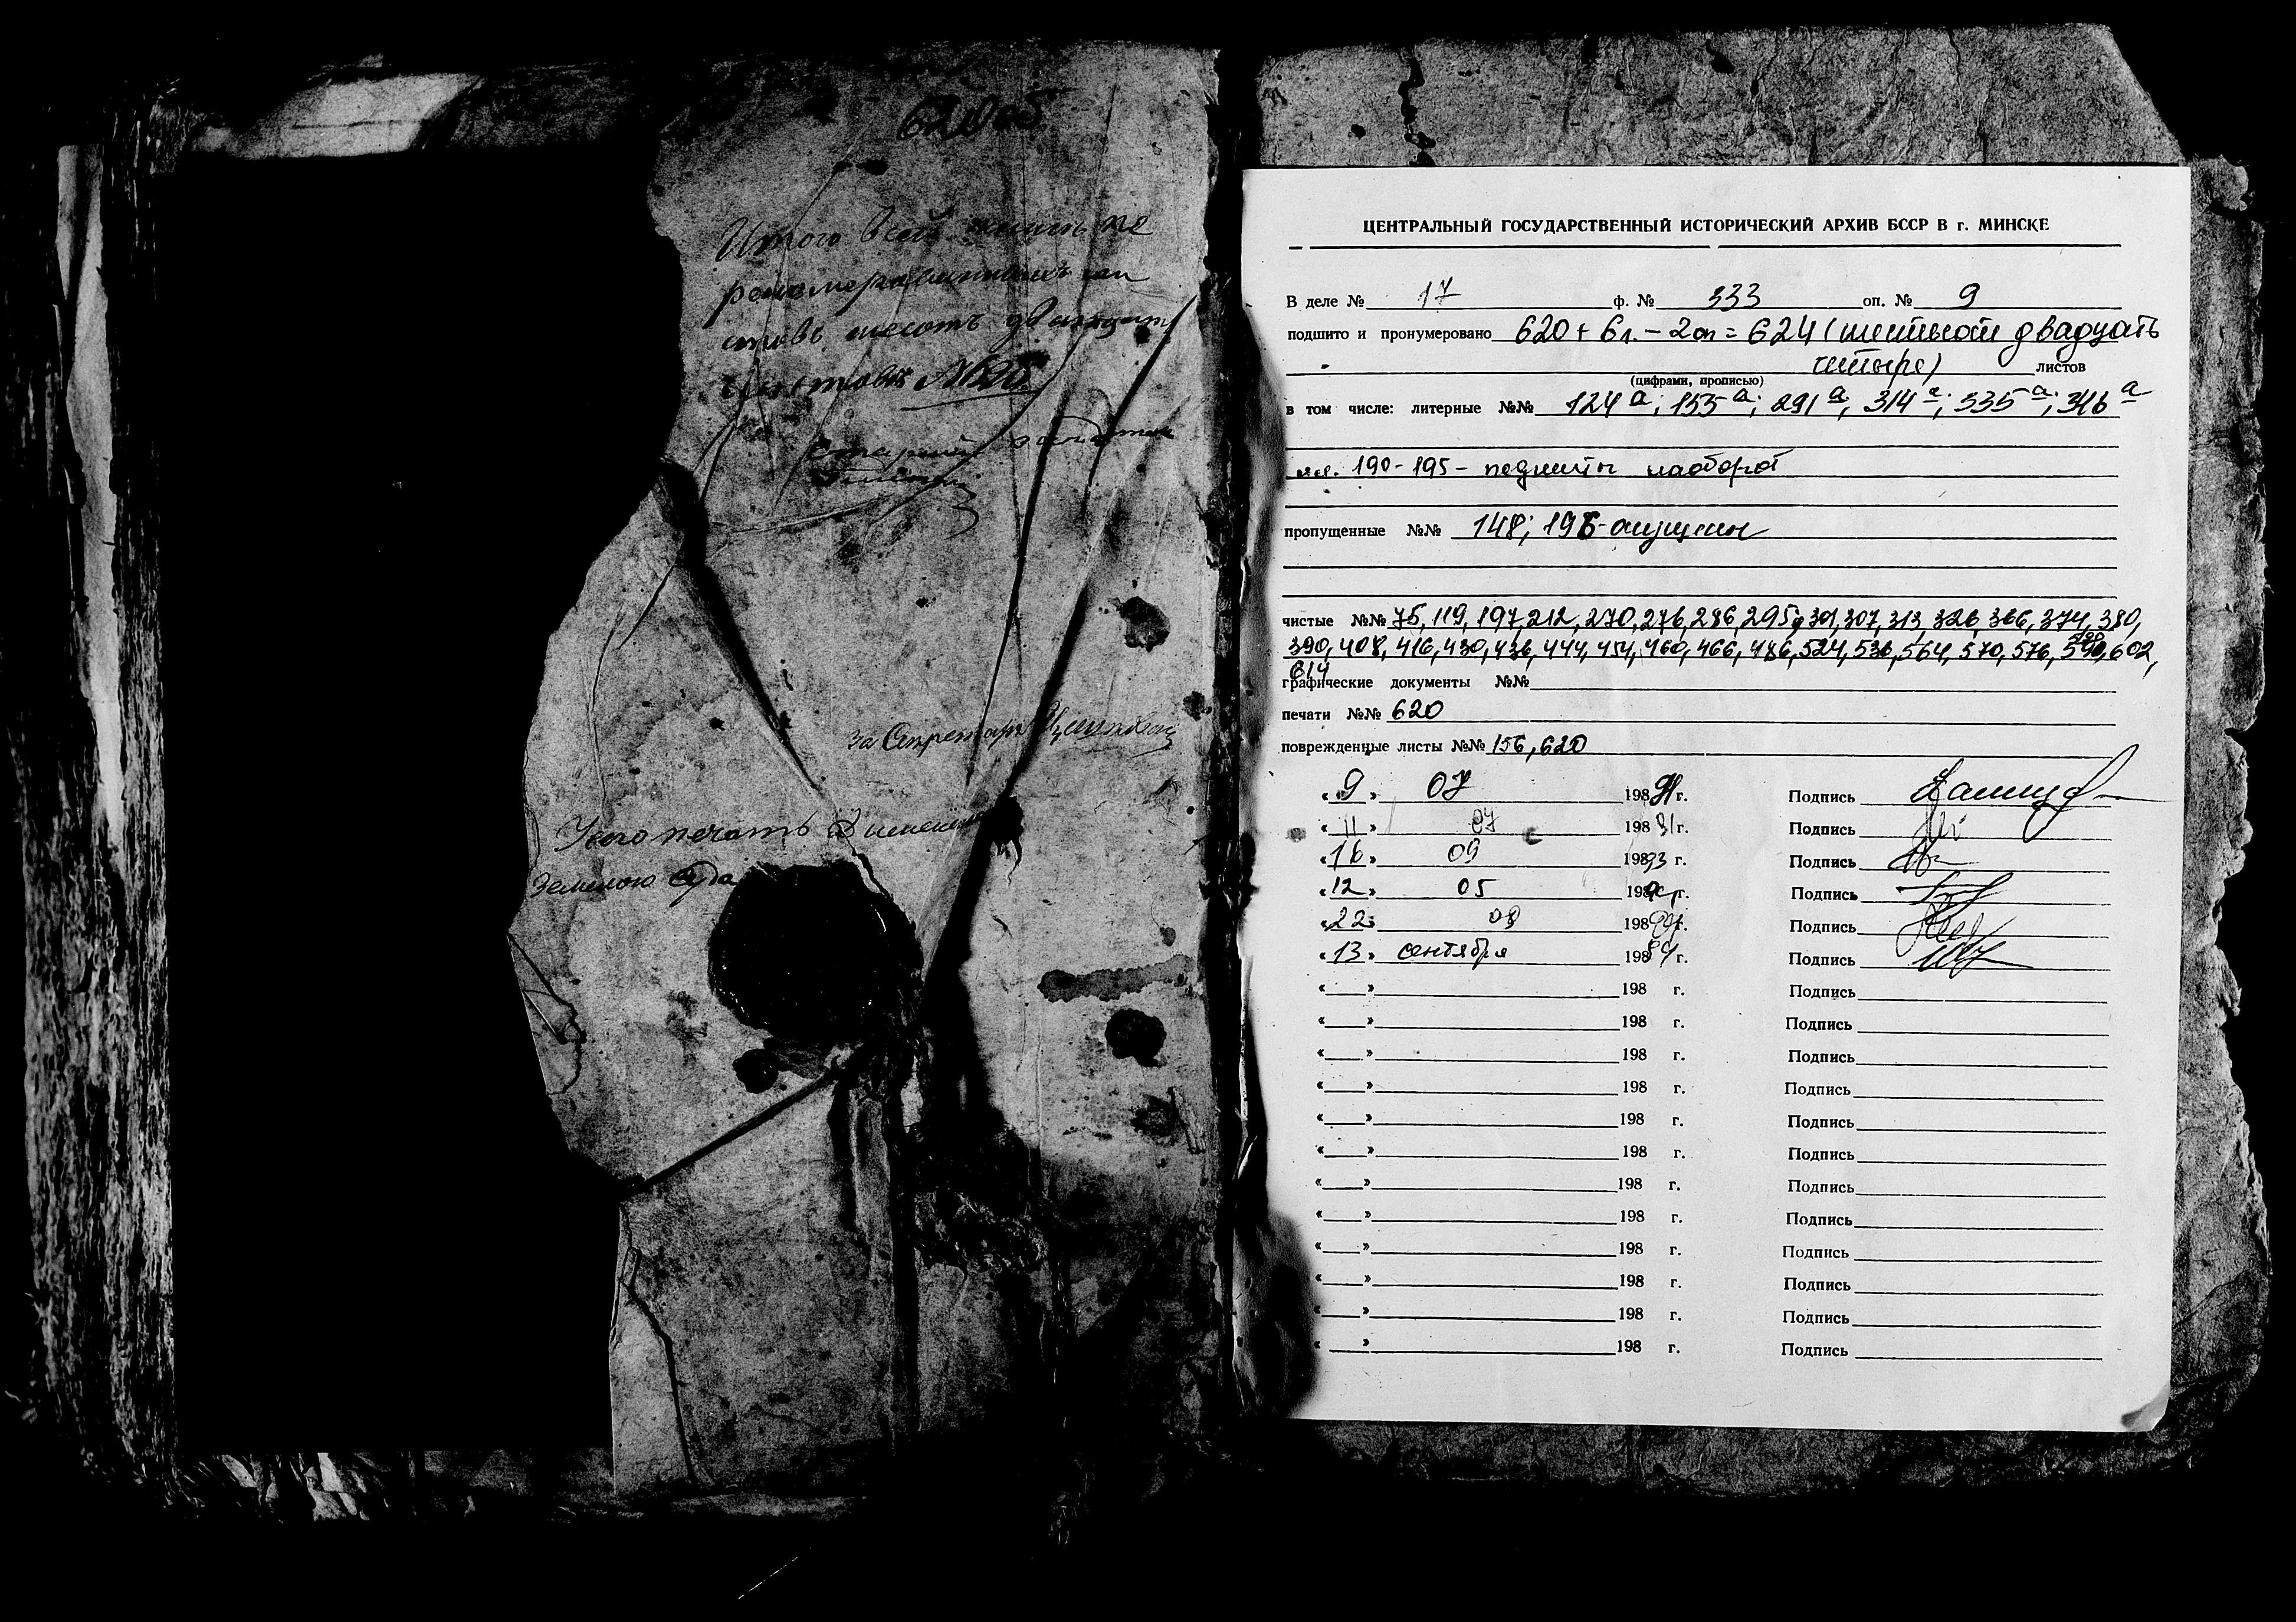 620об
Итого всей
двадцать
листовъ №620
Старший
За Секретаря
Усого печать
Земского Суда
ЦЕНТРАЛЬНЫЙ ГОСУДАРСТВЕННЫЙ ИСТОРИЧЕСКИЙ АРХИВ БССР В г. МИНСКЕ
В деле № 17 ф. № 333 оп. № 9
подшито и пронумеровано 620 + 6л. - 2оп = 624 (шестьсот двадцать
четыре) листов
(цифрами, прописью)
в том числе: литерные №№ 124а; 153а; 291а; 314а; 335а; 346а
лл. 190-195 - подшиты наоборот
пропущенные №№ 148; 196 - опущены
чистые №№ 75, 119, 197, 212, 270, 276, 286, 295, 301, 307, 313, 326, 366, 374, 380,
390, 408, 416, 430, 436, 444, 454, 460, 466, 486, 524, 536, 564, 570, 576, 590, 602,
614
графические документы №№
печати №№ 620
поврежденные листы №№ 156, 620
« 9 » 07 198 91 г. Подпись
« 11 » 07 198 91 г. Подпись
« 16 » 09 198 93 г. Подпись
« 12 » 05 198 г. Подпись
« 22 » 08 198 г. Подпись
« 13 » сентября 198 г. Подпись
« » 198 г. Подпись
« » 198 г. Подпись
« » 198 г. Подпись
« » 198 г. Подпись
« » 198 г. Подпись
« » 198 г. Подпись
« » 198 г. Подпись
« » 198 г. Подпись
« » 198 г. Подпись
« » 198 г. Подпись
« » 198 г. Подпись
« » 198 г. Подпись